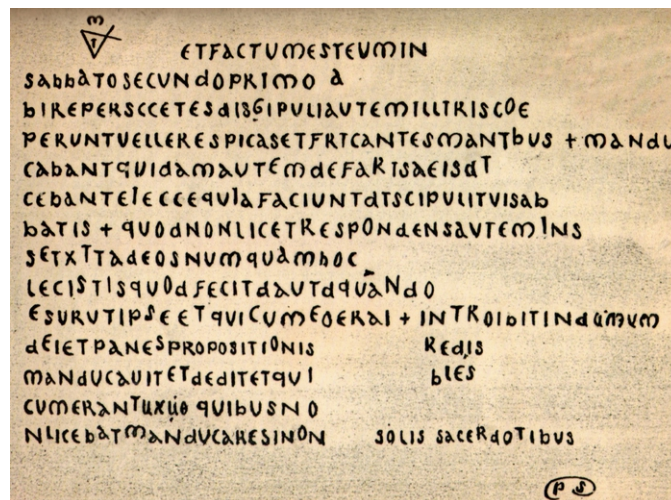 ETFACTUMESTEUMIN
SABBATOSECUNDOPRIMO A
BIREPERSCCETESDISGIPULIAUTEMILLTRISCOE
PERUNTUELLERESPICASETFRTCANTESMANTBUS + MANDU
CABANTQUIDAMAUTEMDEFARTSAEISDT
CEBANTEIECCEQUIAFACIUNTDTSCIPULITUISAB
BATIS + QUODNONLICETRESPONDENSAUTEMINS
SETXTTADEOSNUMQUAMHOC
LECISTISQUODFECITDAUTDQUANDO
ESURUTIPSEETQUICUMEOERAI + INTROIBITINDUMUM
DEIETPANESPROPOSITIONIS REDIS
MANDUCAUITETDEDITETQUI BLES
CUMERANTUXUO QUIBUSNO
NLICEBATMANDUCARESINON SOLIS SACERDOTIBUS
PS